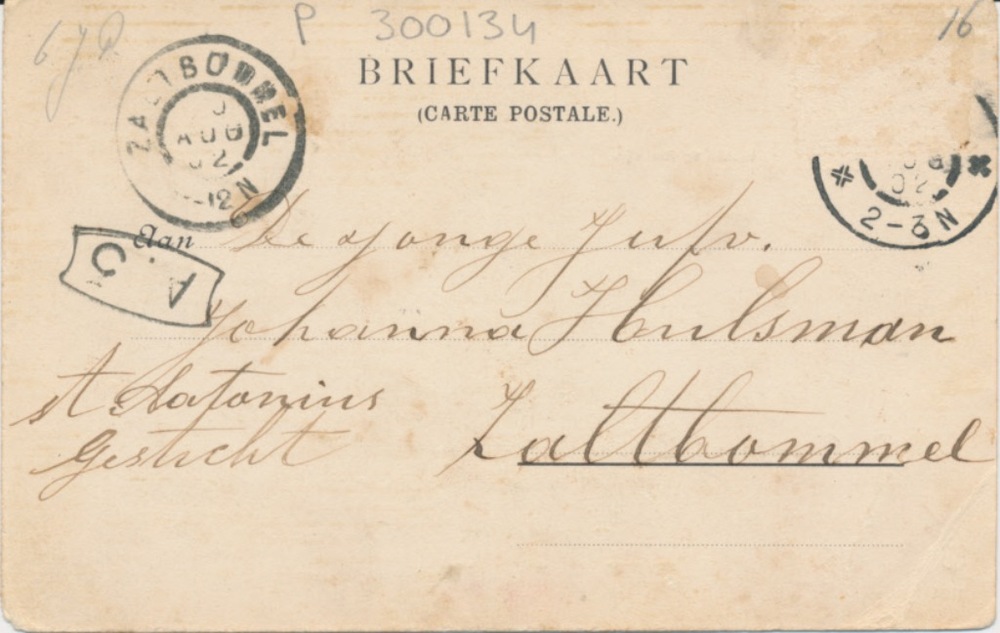 P 300134
16
BRIEFKAART
(CARTE POSTALE.)
ZALTBOMMEL
AUG
02
-12N
02
2-3N
Aan De jonge Jufv.
A
Johanna Hulsman
st Antonius
Gesticht
Zaltbommel